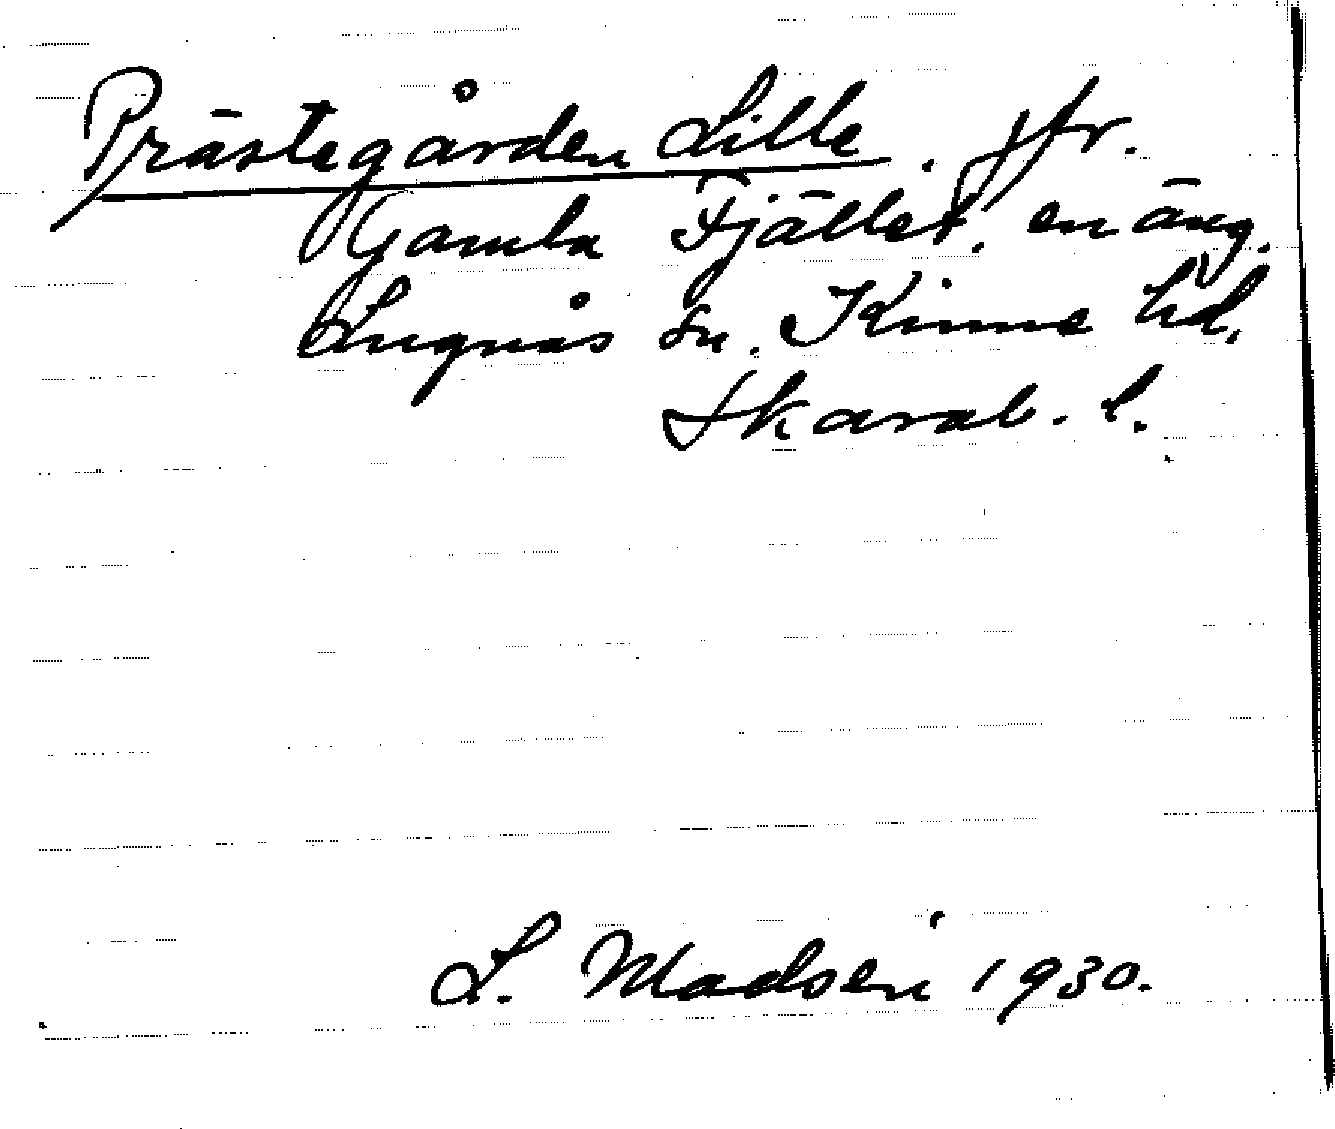 Prästegården Lille. jfr.
Gamla Fjället, en äng.
Lugnås sn. Kinne hd,
Skarab. l.
L. Madsén 1930.